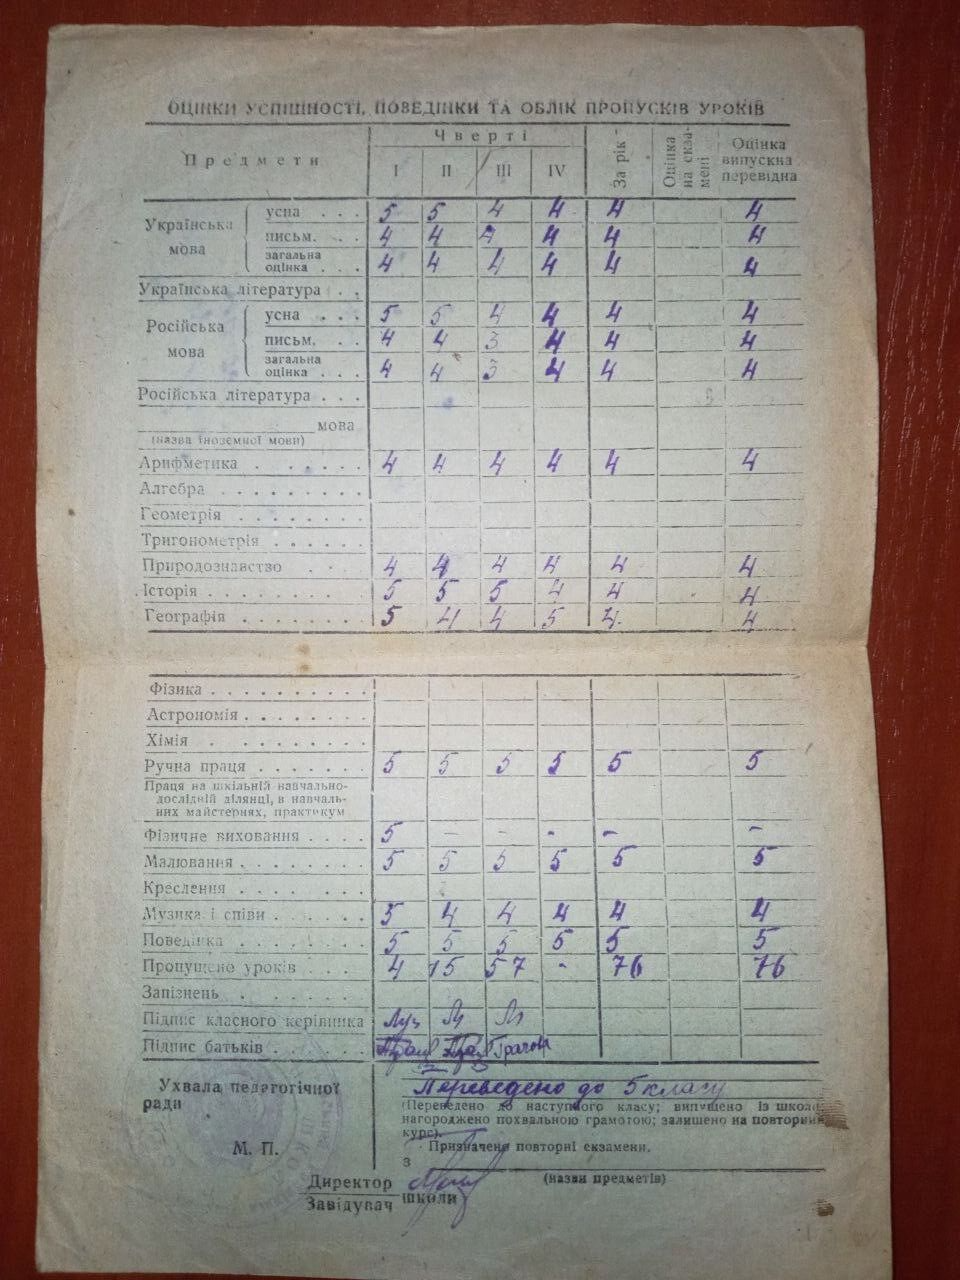 ОЦІНКИ УСПІШНОСТІ, ПОВЕДІНКИ ТА ОБЛІК ПРОПУСКІВ УРОКІВ
Предмети Чверті За рік Оцінка на екзамені Оцінка випускна перевідна
I II III IV
Українська мова усна . . . 5 5 4 4 4 4
письм. . . 4 4 4 4 4 4
загальна оцінка . . . 4 4 4 4 4 4
Українська література . .
Російська мова усна . . . 5 5 4 4 4 4
письм. . . 4 4 3 4 4 4
загальна оцінка . . . 4 4 3 4 4 4
Російська література . . .
мова
(назва іноземної мови)
Арифметика . . . . . . 4 4 4 4 4 4
Алгебра . . . . . . . .
Геометрія . . . . . . .
Тригонометрія . . . . . .
Природознавство . . . 4 4 4 4 4 4
Історія . . . . . . . . 5 5 5 4 4 4
Географія . . . . . . . 5 4 4 5 4. 4
Фізика . . . . . . . . . .
Астрономія . . . . . . . .
Хімія . . . . . . . . .
Ручна праця . . . . . . . 5 5 5 5 5 5
Праця на шкільній навчально-
дослідній ділянці, в навчаль-
них майстернях, практикум
Фізичне виховання . . . . 5 - - - - -
Малювання . . . . . . . . 5 5 5 5 5 5
Креслення . . . . . . . .
Музика і співи . . . . . . 5 4 4 4 4 4
Поведінка . . . . . . . . 5 5 5 5 5 5
Пропущено уроків . . . 4 15 57 - 76 76
Запізнень . . . . . . .
Підпис класного керівника
Підпис батьків . . . . . . Грачова
Ухвала педагогічної
ради
Переведено до 5 класу
(Переведено до наступного класу; випущено із школи;
нагороджено похвальною грамотою; залишено на повторний
курс).
Призначено повторні екзамени.
М. П.
з
(назви предметів)
Директор
Завідувач школи